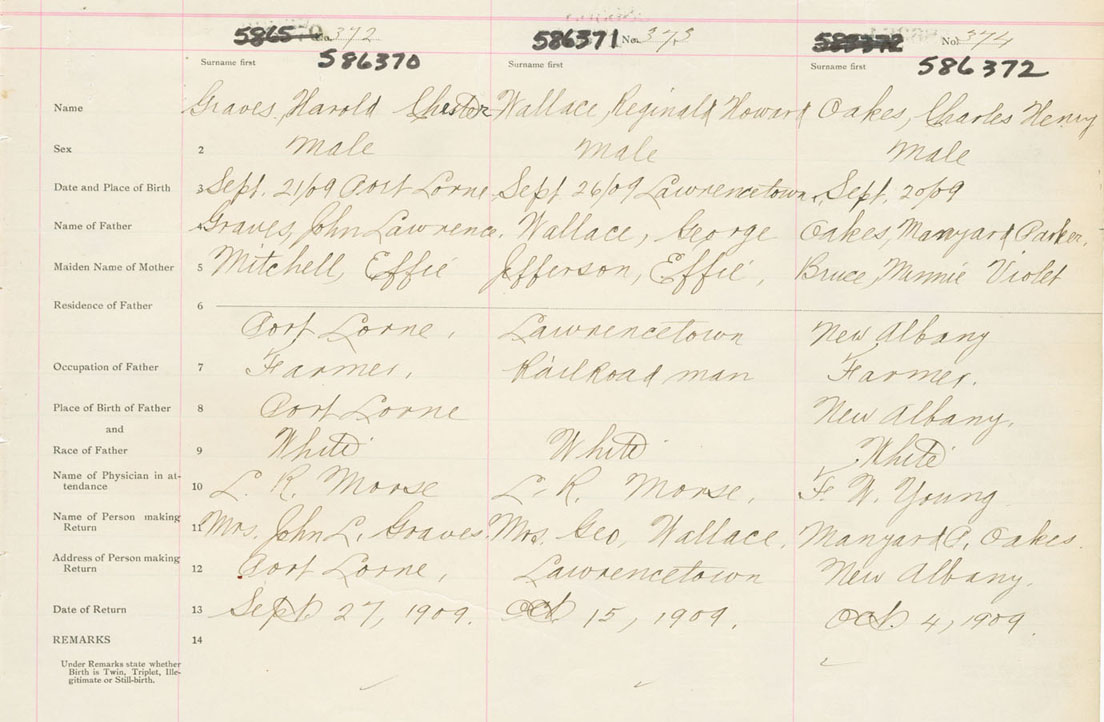 5865 No. 372 586371 No. 373 585372 No. 374
586370 586372
Surname first Surname first Surname first
Name Graves, Harold Chester Wallace, Reginald Howard Oakes, Charles Henry
Sex 2 Male Male Male
Date and Place of Birth 3 Sept. 21/09 Port Lorne Sept 26/09 Lawrencetown, Sept. 20/09
Name of Father 4 Graves, John Lawrence. Wallace, George Oakes, Manyard Parker.
Maiden Name of Mother 5 Mitchell, Effie Jefferson, Effie, Bruce, Minnie Violet
Residence of Father 6
Port Lorne, Lawrencetown New Albany
Occupation of Father 7 Farmer, Railroad man Farmer.
Place of Birth of Father 8 Port Lorne New Albany,
and
Race of Father 9 White White White
Name of Physician in at-
tendance 10 L. R. Morse L. R. Morse, F. W. Young
Name of Person making
Return 11 Mrs. John L. Graves. Mrs. Geo, Wallace, Manyard P. Oakes.
Address of Person making
Return 12 Port Lorne, Lawrencetown New Albany.
Date of Return 13 Sept 27, 1909. Oct 15, 1909. Oct. 4, 1909.
REMARKS 14
Under Remarks state whether
Birth is Twin, Triplet, Ille-
gitimate or Still-birth.